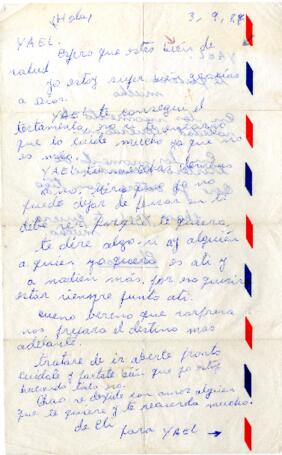 (Hola) 3, 9, 84
YAEL.
Espero que estés bién de
salud.
yo estoy super gracias
a Dios.
YAEL te conseguí el
testamento,
que lo cuide mucho ya que no
es mio.
YAEL
puedo dejar de pensar en tí
debe ser porque te quiero,
te dire algo si ay alguién
a quien yo quiero es a ti y
a nadien más, por eso quisiera
estar siempre junto a ti.
bueno veremo que sorpresa
nos prepara el destino mas
adelante.
tratare de ir aberte pronto
cuidate y portate bién que yo estoy
haciendo todo
Chao se despide con amor alguien
que te quiere y te recuerda mucho.
de Eli
para YAEL →